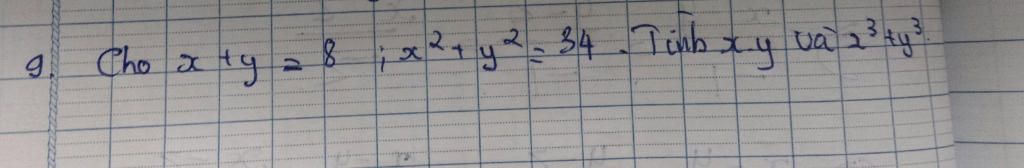 9. Cho x + y = 8 ; x² + y² = 34. Tính x.y và x³ + y³.